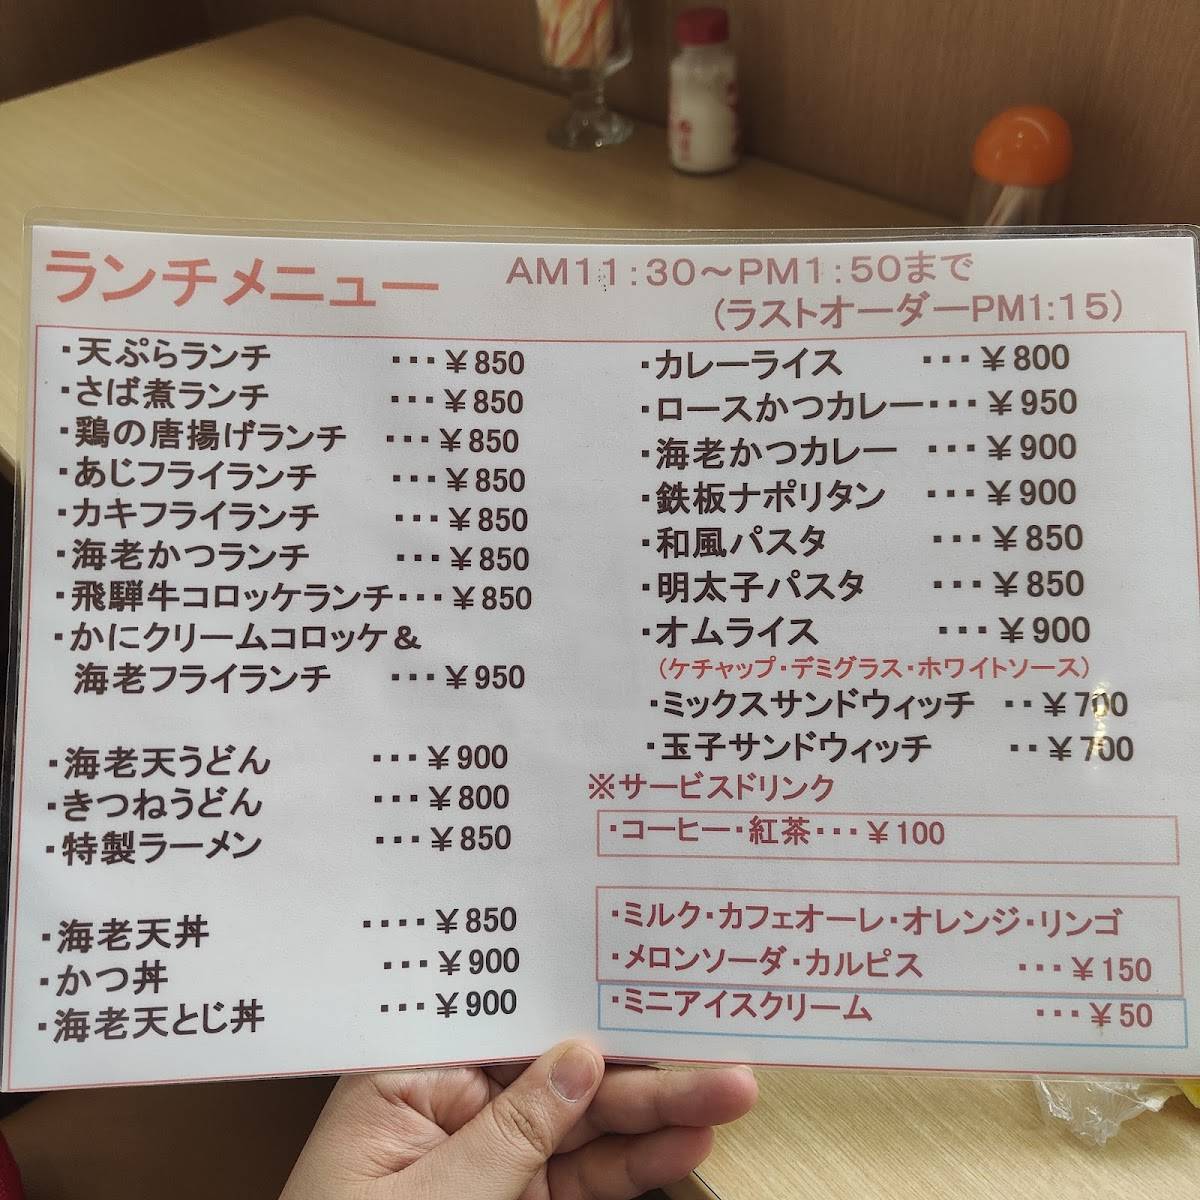 ランチメニュー
AM11:30～PM1:50まで
(ラストオーダーPM1:15)
・天ぷらランチ ・・・¥850
・さば煮ランチ ・・・¥850
・鶏の唐揚げランチ ・・・¥850
・あじフライランチ ・・・¥850
・カキフライランチ ・・・¥850
・海老かつランチ ・・・¥850
・飛騨牛コロッケランチ・・・¥850
・かにクリームコロッケ＆
海老フライランチ ・・・¥950
・海老天うどん ・・・¥900
・きつねうどん ・・・¥800
・特製ラーメン ・・・¥850
・海老天丼 ・・・・¥850
・かつ丼 ・・・¥900
・海老天とじ丼 ・・・¥900
・カレーライス ・・・¥800
・ロースかつカレー・・・¥950
・海老かつカレー ・・・¥900
・鉄板ナポリタン ・・・¥900
・和風パスタ ・・・¥850
・明太子パスタ ・・・¥850
・オムライス ・・・¥900
(ケチャップ・デミグラス・ホワイトソース)
・ミックスサンドウィッチ ・・¥700
・玉子サンドウィッチ ・・¥700
※サービスドリンク
・コーヒー・紅茶・・・¥100
・ミルク・カフェオーレ・オレンジ・リンゴ
・メロンソーダ・カルピス ・・・¥150
・ミニアイスクリーム ・・・¥50